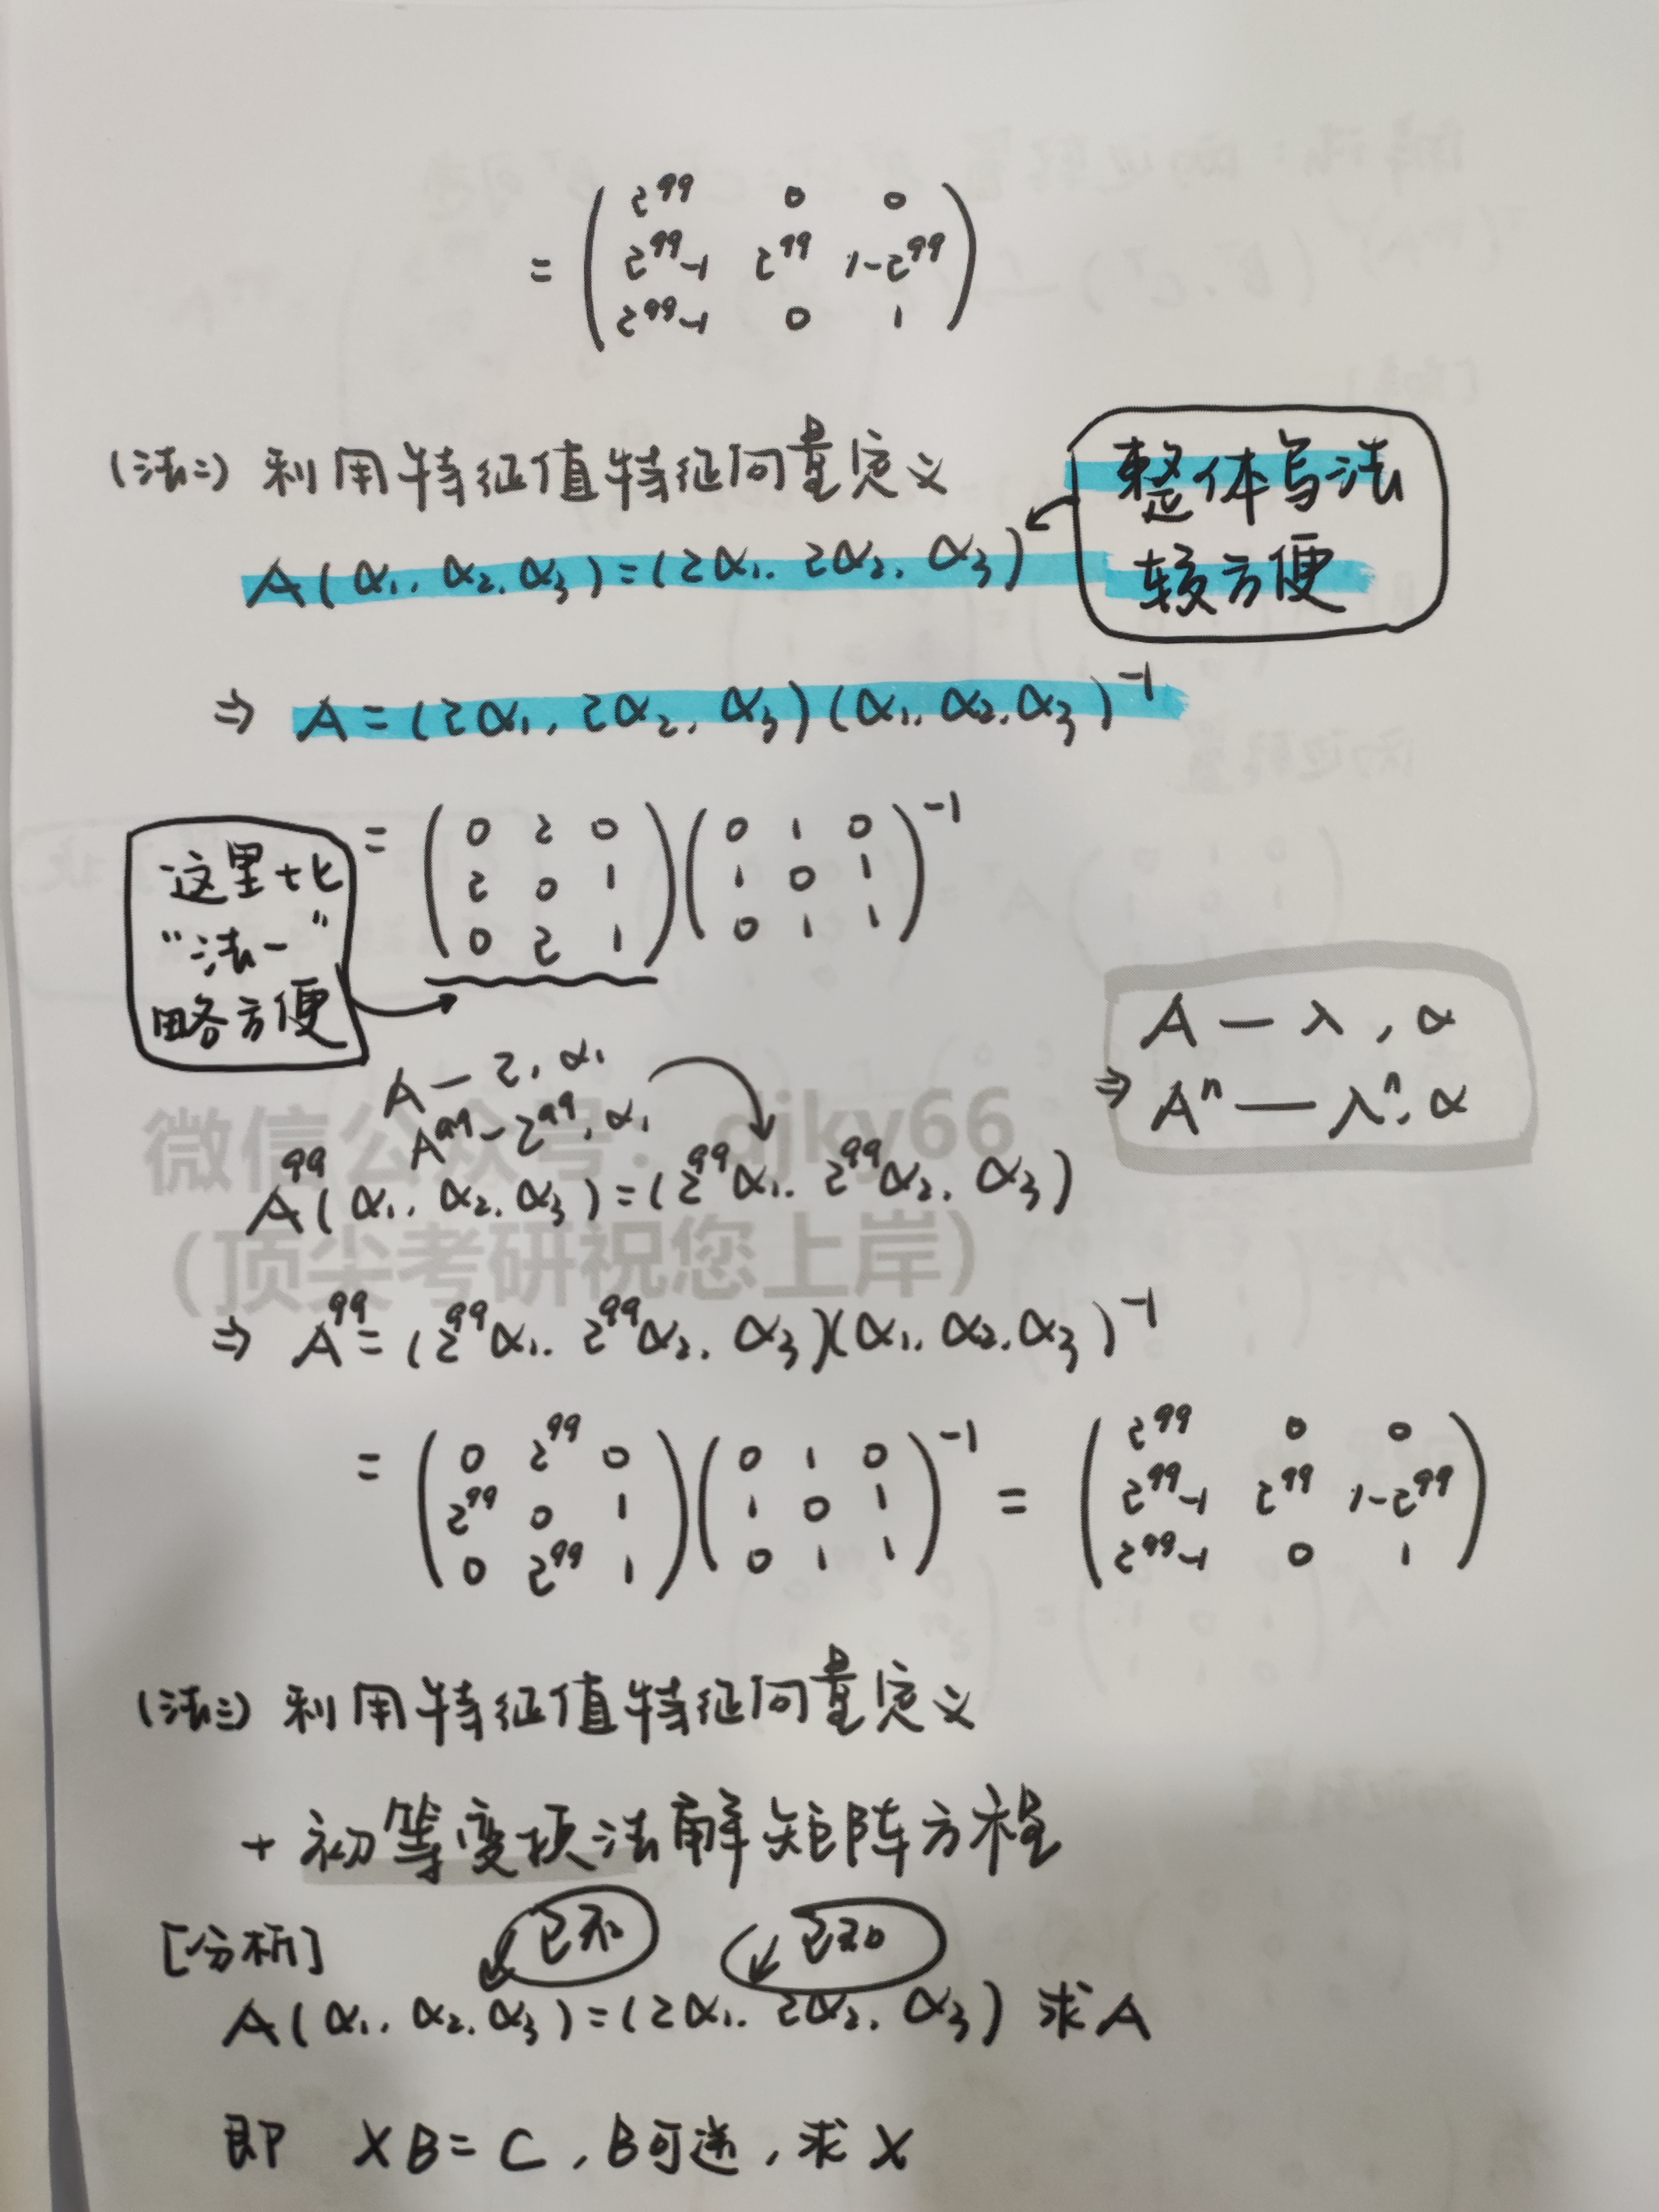 = ( 2^99 0 0
2^99-1 2^99 1-2^99
2^99-1 0 1 )
(法二) 利用特征值特征向量定义
整体写法
较方便
A(α₁, α₂, α₃) = (2α₁, 2α₂, α₃)
⇒ A = (2α₁, 2α₂, α₃)(α₁, α₂, α₃)^-1
这里比
“法一”
略方便
= ( 0 2 0 ) ( 0 1 0 )^-1
( 2 0 1 ) ( 1 0 1 )
( 0 2 1 ) ( 0 1 1 )
A — λ, α
⇒ A^n — λ^n, α
A — 2, α₁
A^99 — 2^99, α₁
微信公众号: djky66
A^99(α₁, α₂, α₃) = (2^99α₁, 2^99α₂, α₃)
(顶尖考研祝您上岸)
⇒ A^99 = (2^99α₁, 2^99α₂, α₃)(α₁, α₂, α₃)^-1
= ( 0 2^99 0 ) ( 0 1 0 )^-1 = ( 2^99 0 0 )
( 2^99 0 1 ) ( 1 0 1 ) ( 2^99-1 2^99 1-2^99 )
( 0 2^99 1 ) ( 0 1 1 ) ( 2^99-1 0 1 )
(法三) 利用特征值特征向量定义
+ 初等变换法解矩阵方程
[分析]
已知 已知
A(α₁, α₂, α₃) = (2α₁, 2α₂, α₃) 求A
即 XB = C, B可逆, 求X